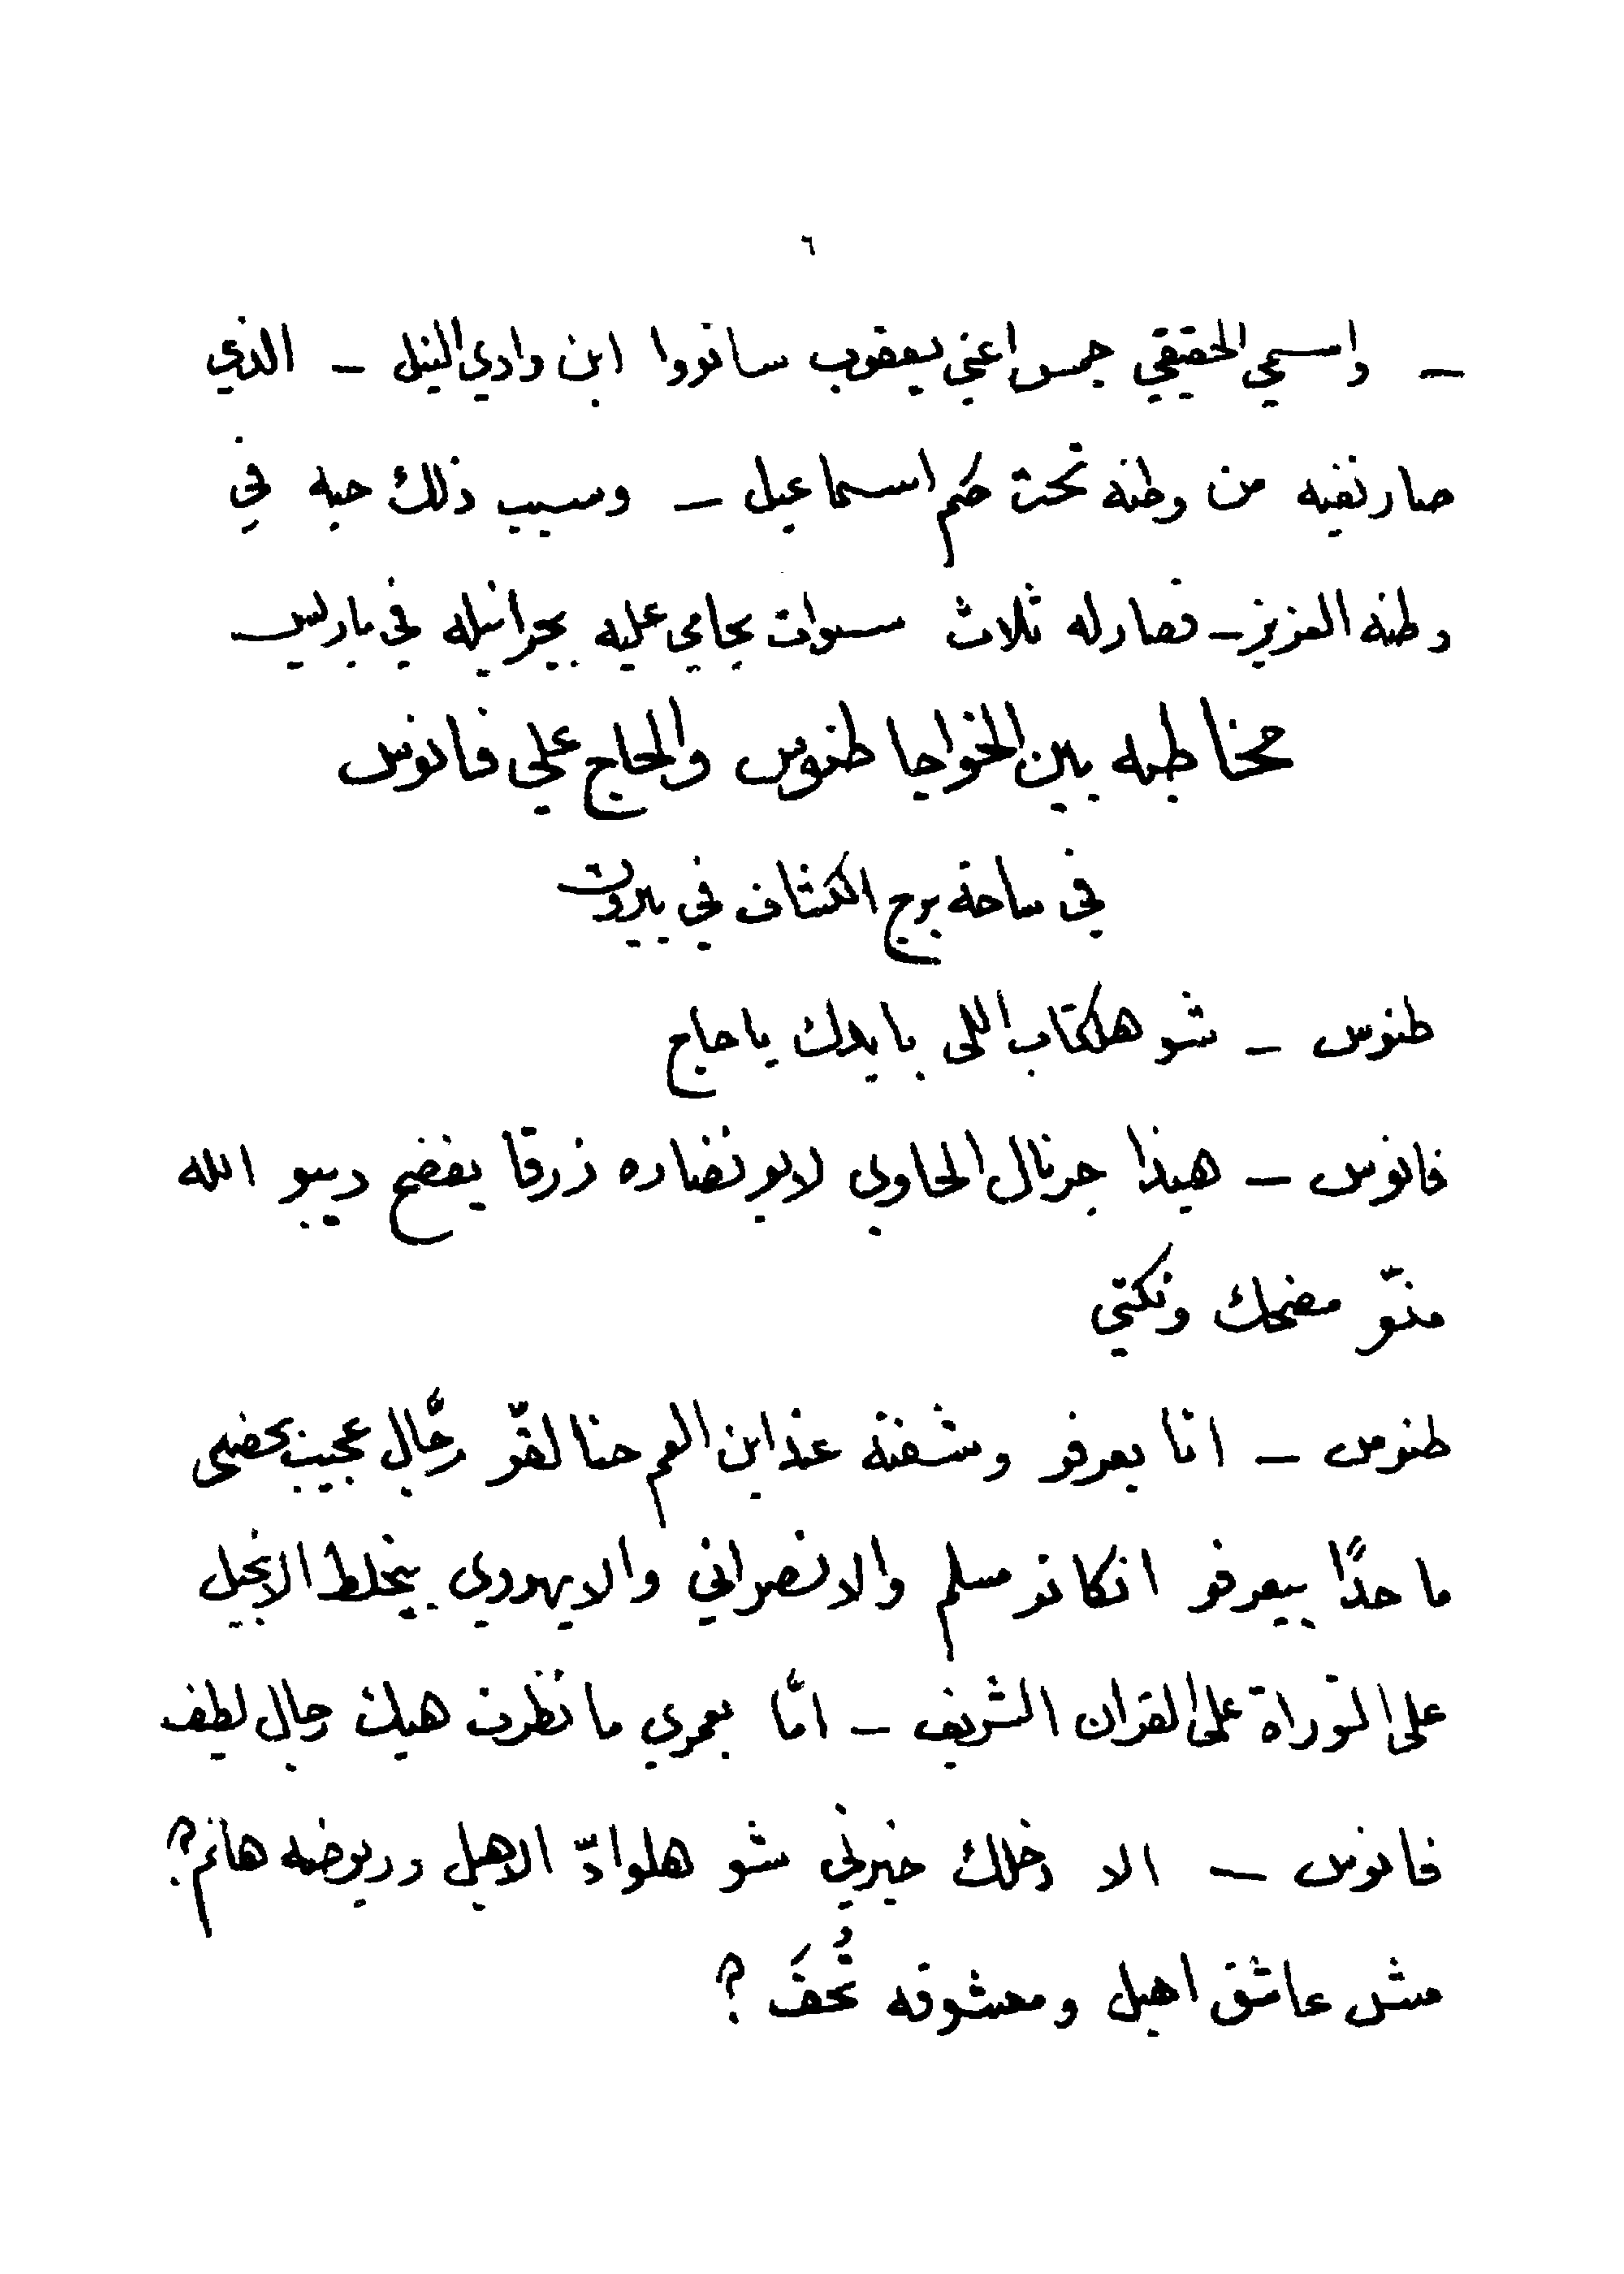 ٦
ـ واسمي الحقيقي جمس اعني يعقوب سانووا ابن وادي النيل ـ الذي
صار نفيه من وطنه تحت حكم اسماعيل ـ وسبب ذلك حبه في
وطنه العزيز ـ فصار له ثلاث سنوات يحامي عليه بجرانيله في باريس
مخاطبه بين الخواجا طنوس والحاج علي فانوس
في ساحة برج الكشاف في بيروت
طنوس ـ شو هلكتاب اللى بايدك يا حاج
فانوس ـ هيذا جرنال الحاوي لابو نضاره زرقا يفضح ديبو الله
منّو مضحك ونكتي
طنوس ـ انا بعرفو وشفته عند ابن العم حنا لقّو رجَّال عجيب بحضى
ما حدًا بيعرفو انكانو مسلم والا نصراني والا يهودي بيخلط الانجيل
على التوراة على القران الشريف ـ امّا بعمري ما نظرت هيك رجال لطيف
فانوس ـ الا دخلك خبرني شو هلوادّ الاهبل وريوضه هانم؟
مش عاشق اهبل ومعشوقه تُحفَ ؟